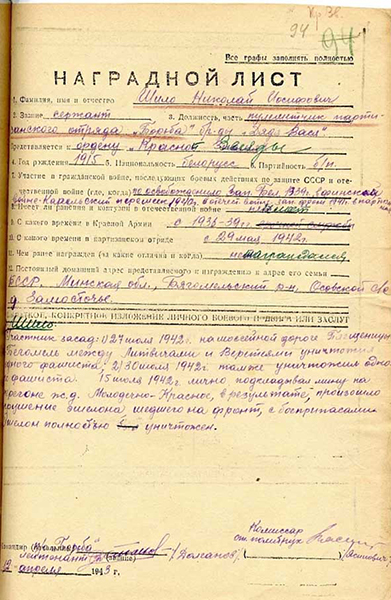 Кр. Зв.
94 94
Все графы заполнять полностью
НАГРАДНОЙ ЛИСТ
1. Фамилия, имя и отчество Шило Николай Иосифович
2. Звание сержант 3. Должность, часть пулеметчик парти-
занского отряда „Борьба" бр-ды „Дяди Васи"
Представляется к ордену „Красной Звезды"
4. Год рождения 1915 5. Национальность белорусс 6. Партийность б/п.
7. Участие в гражданской войне, последующих боевых действиях по защите СССР и оте-
чественной войне (где, когда) по освобождению Зап. Бел. 1939г.
8. Имеет ли ранения и контузии в отечественной войне
9. С какого времени в Красной Армии с 1936-39гг.
10. С какого времени в партизанском отряде с 29 мая 1942г.
11. Чем ранее награжден (за какие отличия и когда) не награждался
12. Постоянный домашний адрес представляемого к награждению и адрес его семьи
БССР, Минская обл., Бегомльский р-н, Осовский с/с
д. Замосточье.
КРАТКОЕ, КОНКРЕТНОЕ ИЗЛОЖЕНИЕ ЛИЧНОГО БОЕВОГО ПОДВИГА ИЛИ ЗАСЛУГ
Шило
Участник засад: 1) 27 июля 1942г. на шоссейной дороге Плещеницы
Бегомль между Литвичами и Веретами уничтожил
одного фашиста. 2) 30 июля 1942г. также уничтожил одно
фашиста. 15 июля 1942г лично подкладывал мину на
перегоне ж.д. Молодечно-Красное, в результате, произошло
крушение эшелона шедшего на фронт, с боеприпасами
эшелон полностью уничтожен.
Командир п/о „Борьба" Комиссар
лейтенант (Долганов) ст. политрук
апреля 1943 г.